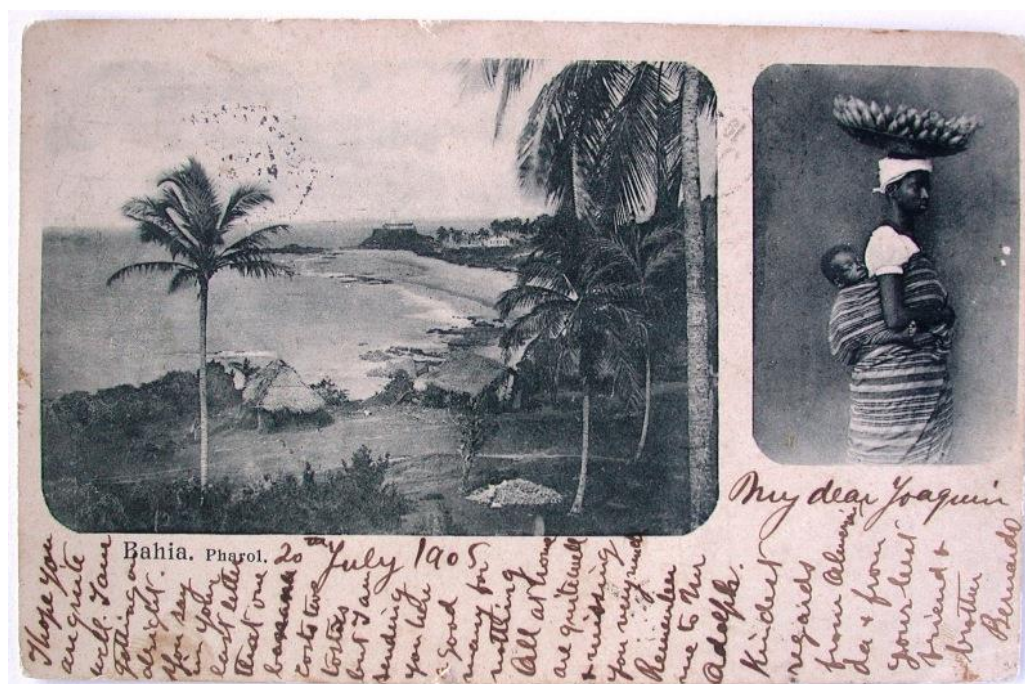 Bahia. Pharol. 20th July 1905
My dear Joaquin
I hope you
are quite
well. I am
getting on
alright.
You say
in your
last letter
that one
banana
costs two
tostoes
but I am
sending
you here
a good
many for
nothing
All at home
are quite well
& missing
you very much
Remember
me to Mr
Adolph.
Kindest
regards
from
da & from
your best
friend &
brother
Bernado